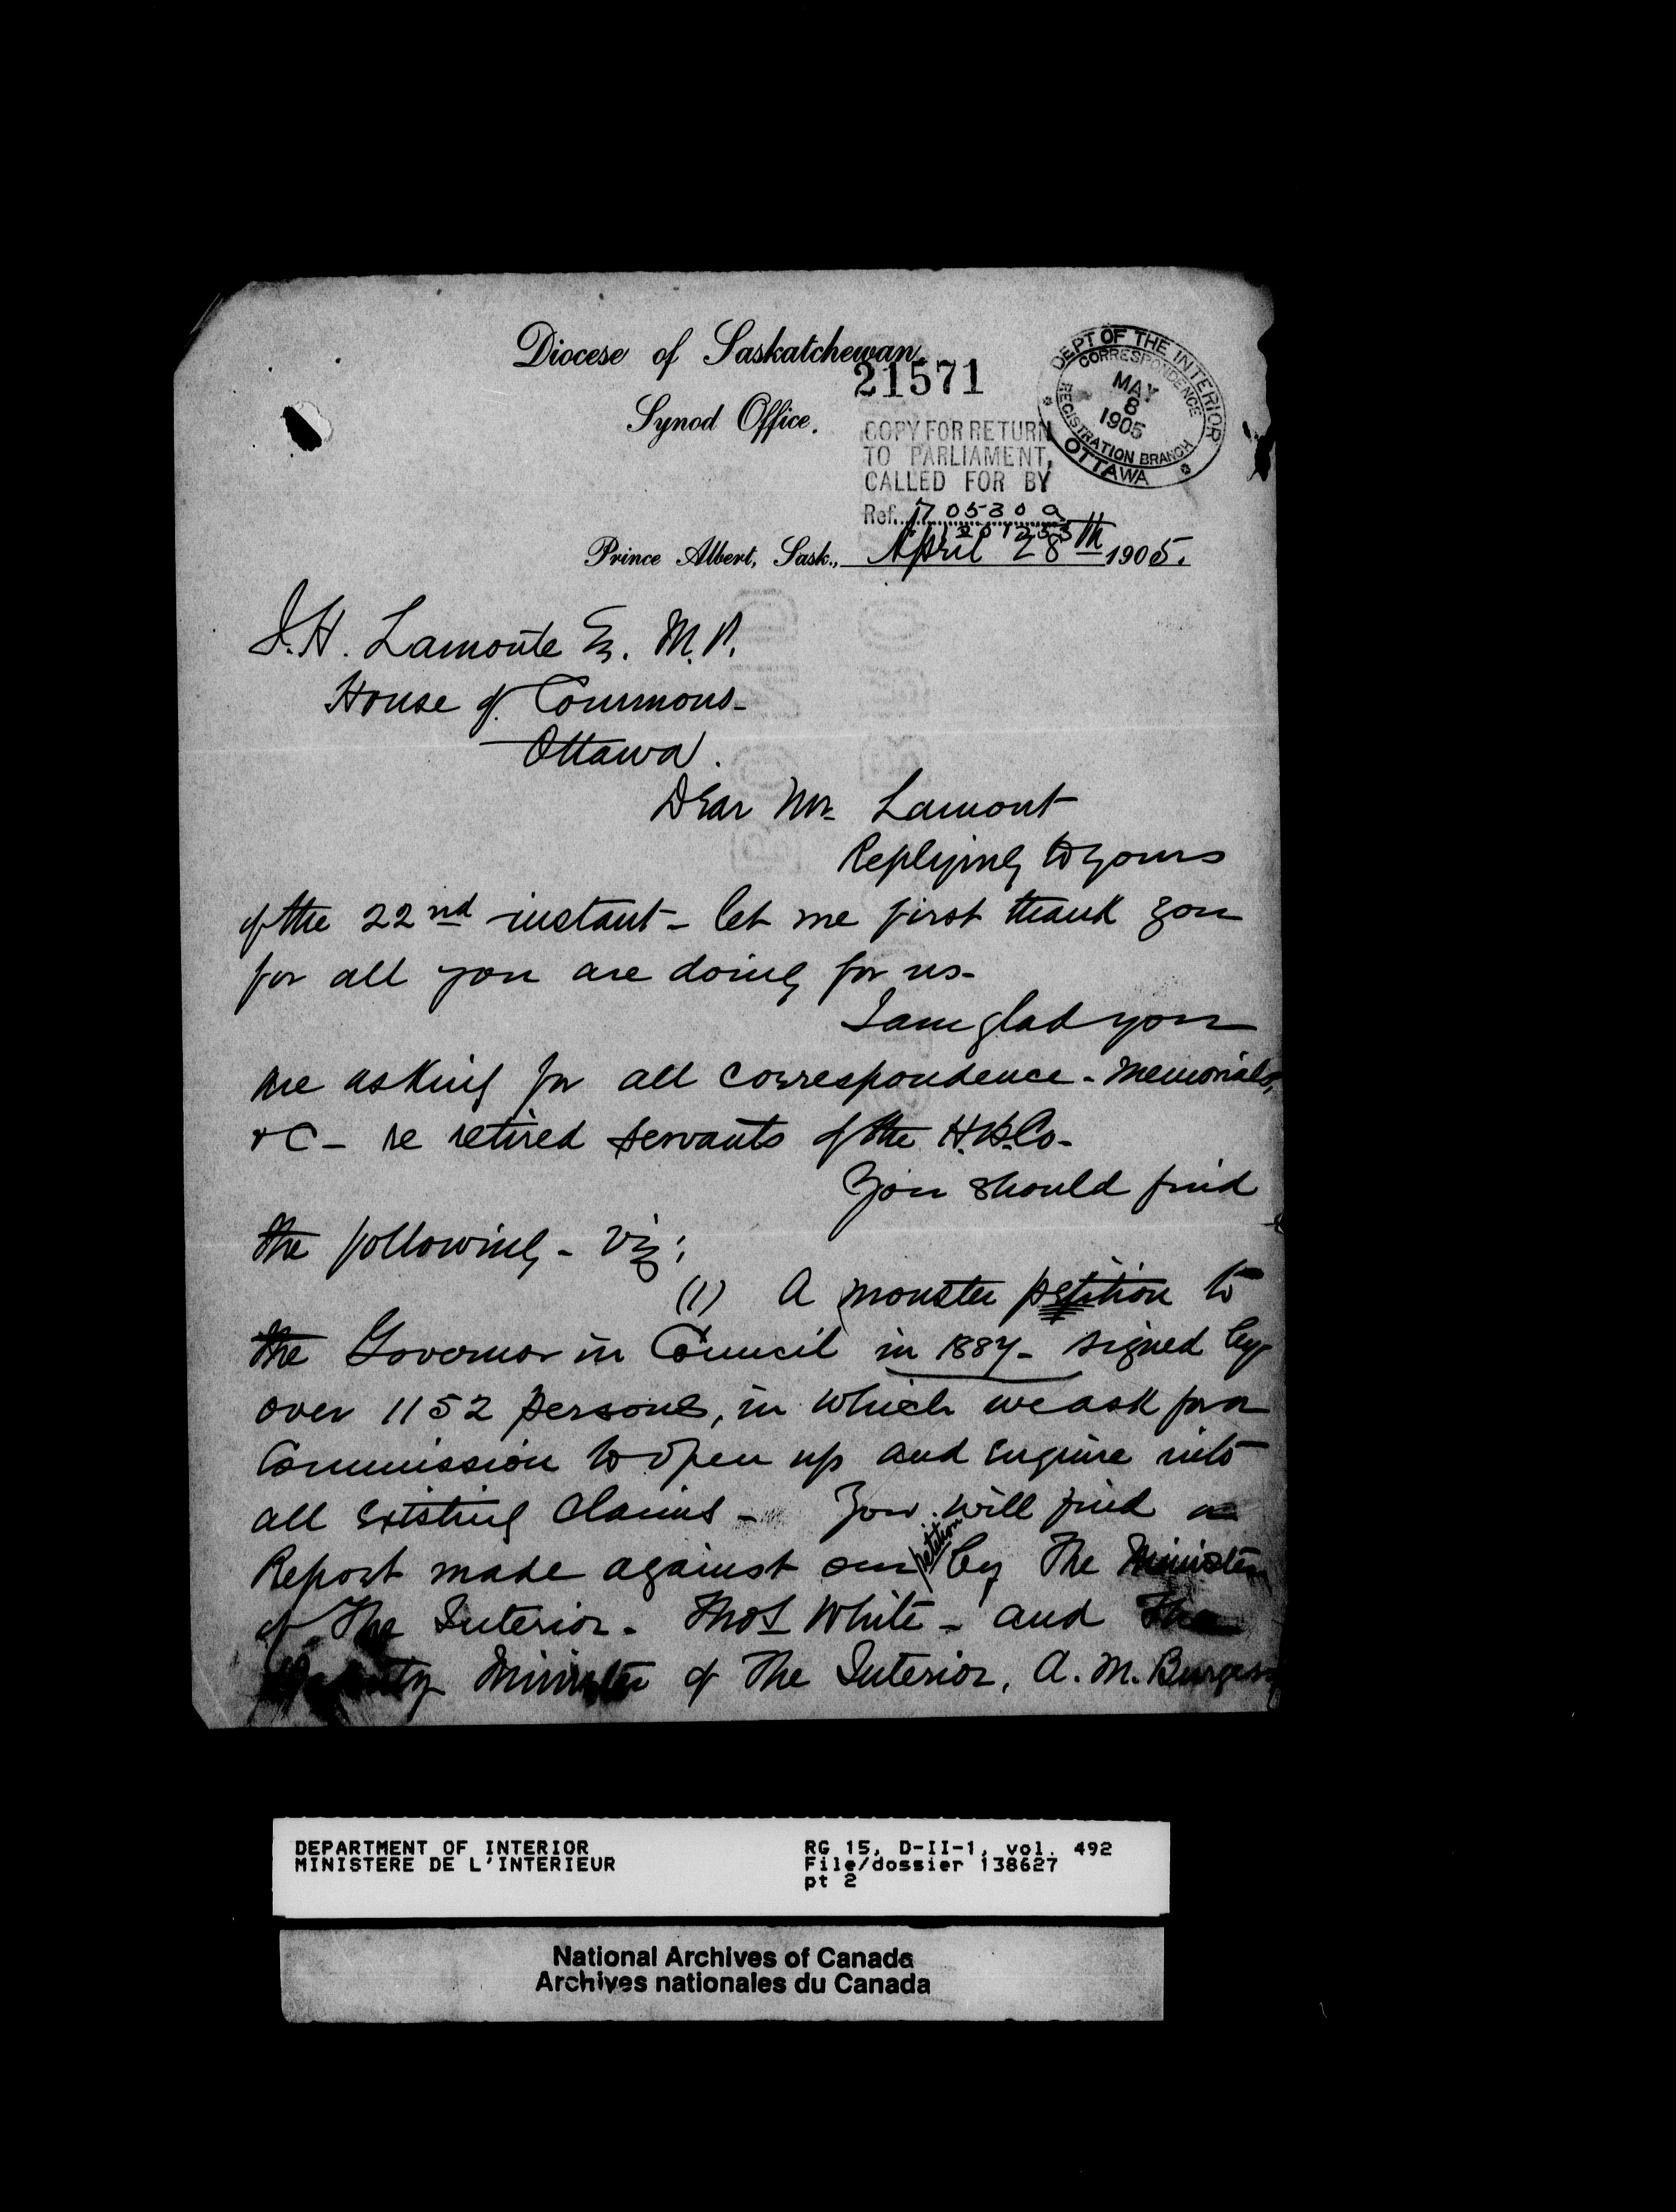 Diocese of Saskatchewan.
21571
Synod Office.
DEPT OF THE INTERIOR
CORRESPONDENCE
MAY
8
1905
REGISTRATION BRANCH
OTTAWA
COPY FOR RETURN
TO PARLIAMENT,
CALLED FOR BY
Ref.
Prince Albert, Sask., April 28th 1905.
J.H. Lamonte Es. M.P.
House of Commons-
Ottawa.
Dear Mr. Lamont
Replying to yours
of the 22nd instant - let me first thank you
for all you are doing for us-
I am glad you
are asking for all correspondence - memorials,
&C - re retired servants of the H.B.Co-
You should find
the following - viz:
(1) A monster petition to
the Governor in Council in 1887 - signed by
over 1152 persons, in which we ask for a
Commission to open up and enquire into
all existing claims - You will find a
Report made against our petition by The Minister
of The Interior - Thos White - and The
Deputy Minister of The Interior, A. M. Burgess
DEPARTMENT OF INTERIOR
MINISTERE DE L'INTERIEUR
RG 15, D-II-1, vol. 492
File/dossier 138627
pt 2
National Archives of Canada
Archives nationales du Canada